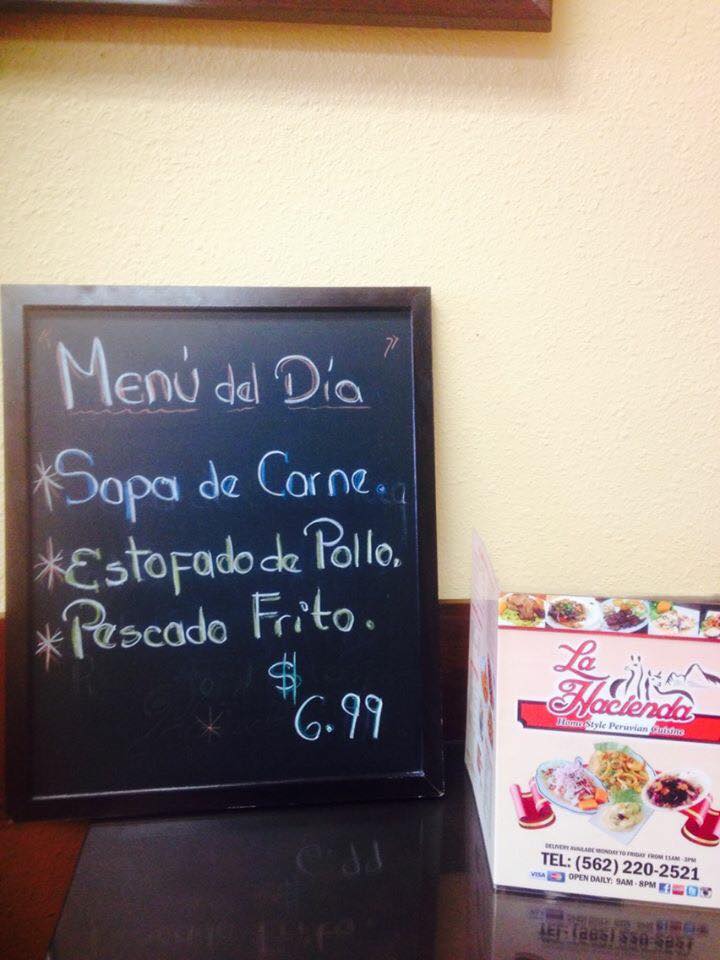 " Menú del Día "
*Sopa de Carne.
*Estofado de Pollo.
*Pescado Frito.
$
6.99
La
Hacienda
Home Style Peruvian Cuisine
DELIVERY AVAILABE MONDAY TO FRIDAY FROM 11AM - 3PM
TEL: (562) 220-2521
VISA OPEN DAILY: 9AM - 8PM